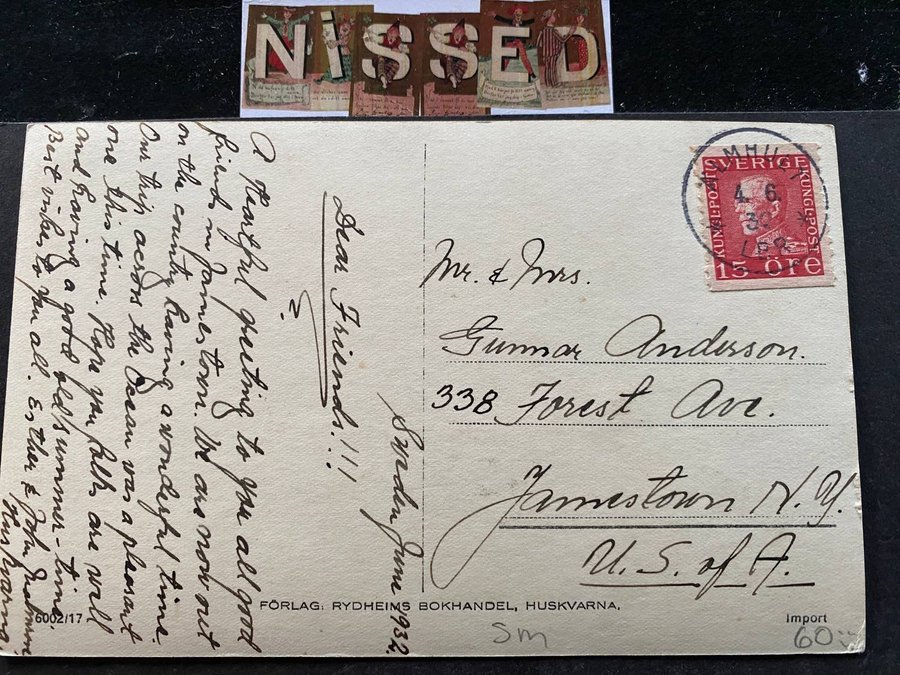 NISSED
Sweden June 1932.
Dear Friends!!!
A Heartful greeting to you all good
friends in Jamestown. We are now out
on the country having a wonderful time.
Our trip across the Ocean was a pleasant
one this time. Hope you folks are well
and having a good old summer-time.
Best wishes to you all. Esther & John
Huskvarna
SVERIGE
KUNGL·POST
KUNGL·POST
15 ÖRE
4. 6.
LBR
Mr. & Mrs.
Gunnar Anderson.
338 Forest Ave.
Jamestown N.Y.
U.S. of A.
FÖRLAG: RYDHEIMS BOKHANDEL, HUSKVARNA.
6002/17
Import
SM
60:-